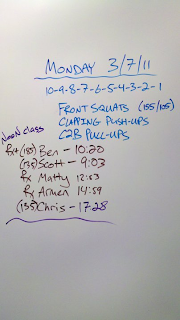 MONDAY 3/7/11
10-9-8-7-6-5-4-3-2-1
FRONT SQUATS (155/105)
CLAPPING PUSH-UPS
C2B PULL-UPS
Noon class
Rx+(185) Ben - 10:20
(135) Scott - 9:03
Rx Matty 12:53
Rx Armen 14:59
(135) Chris - 17:28